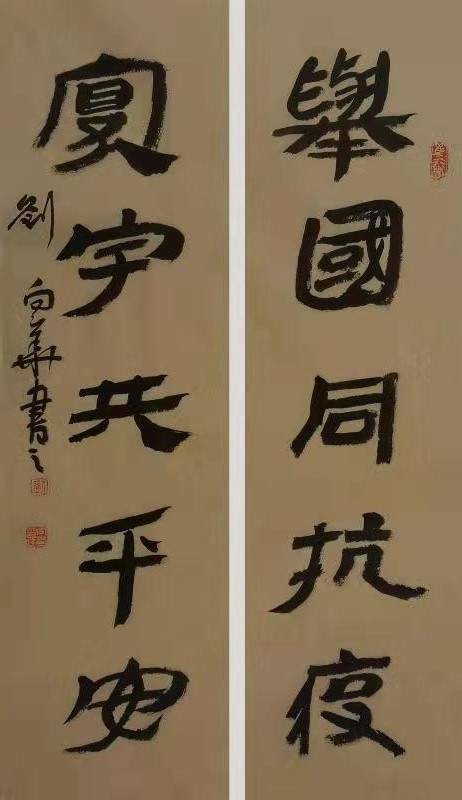 舉國同抗疫
寰宇共平安
劉向華書之